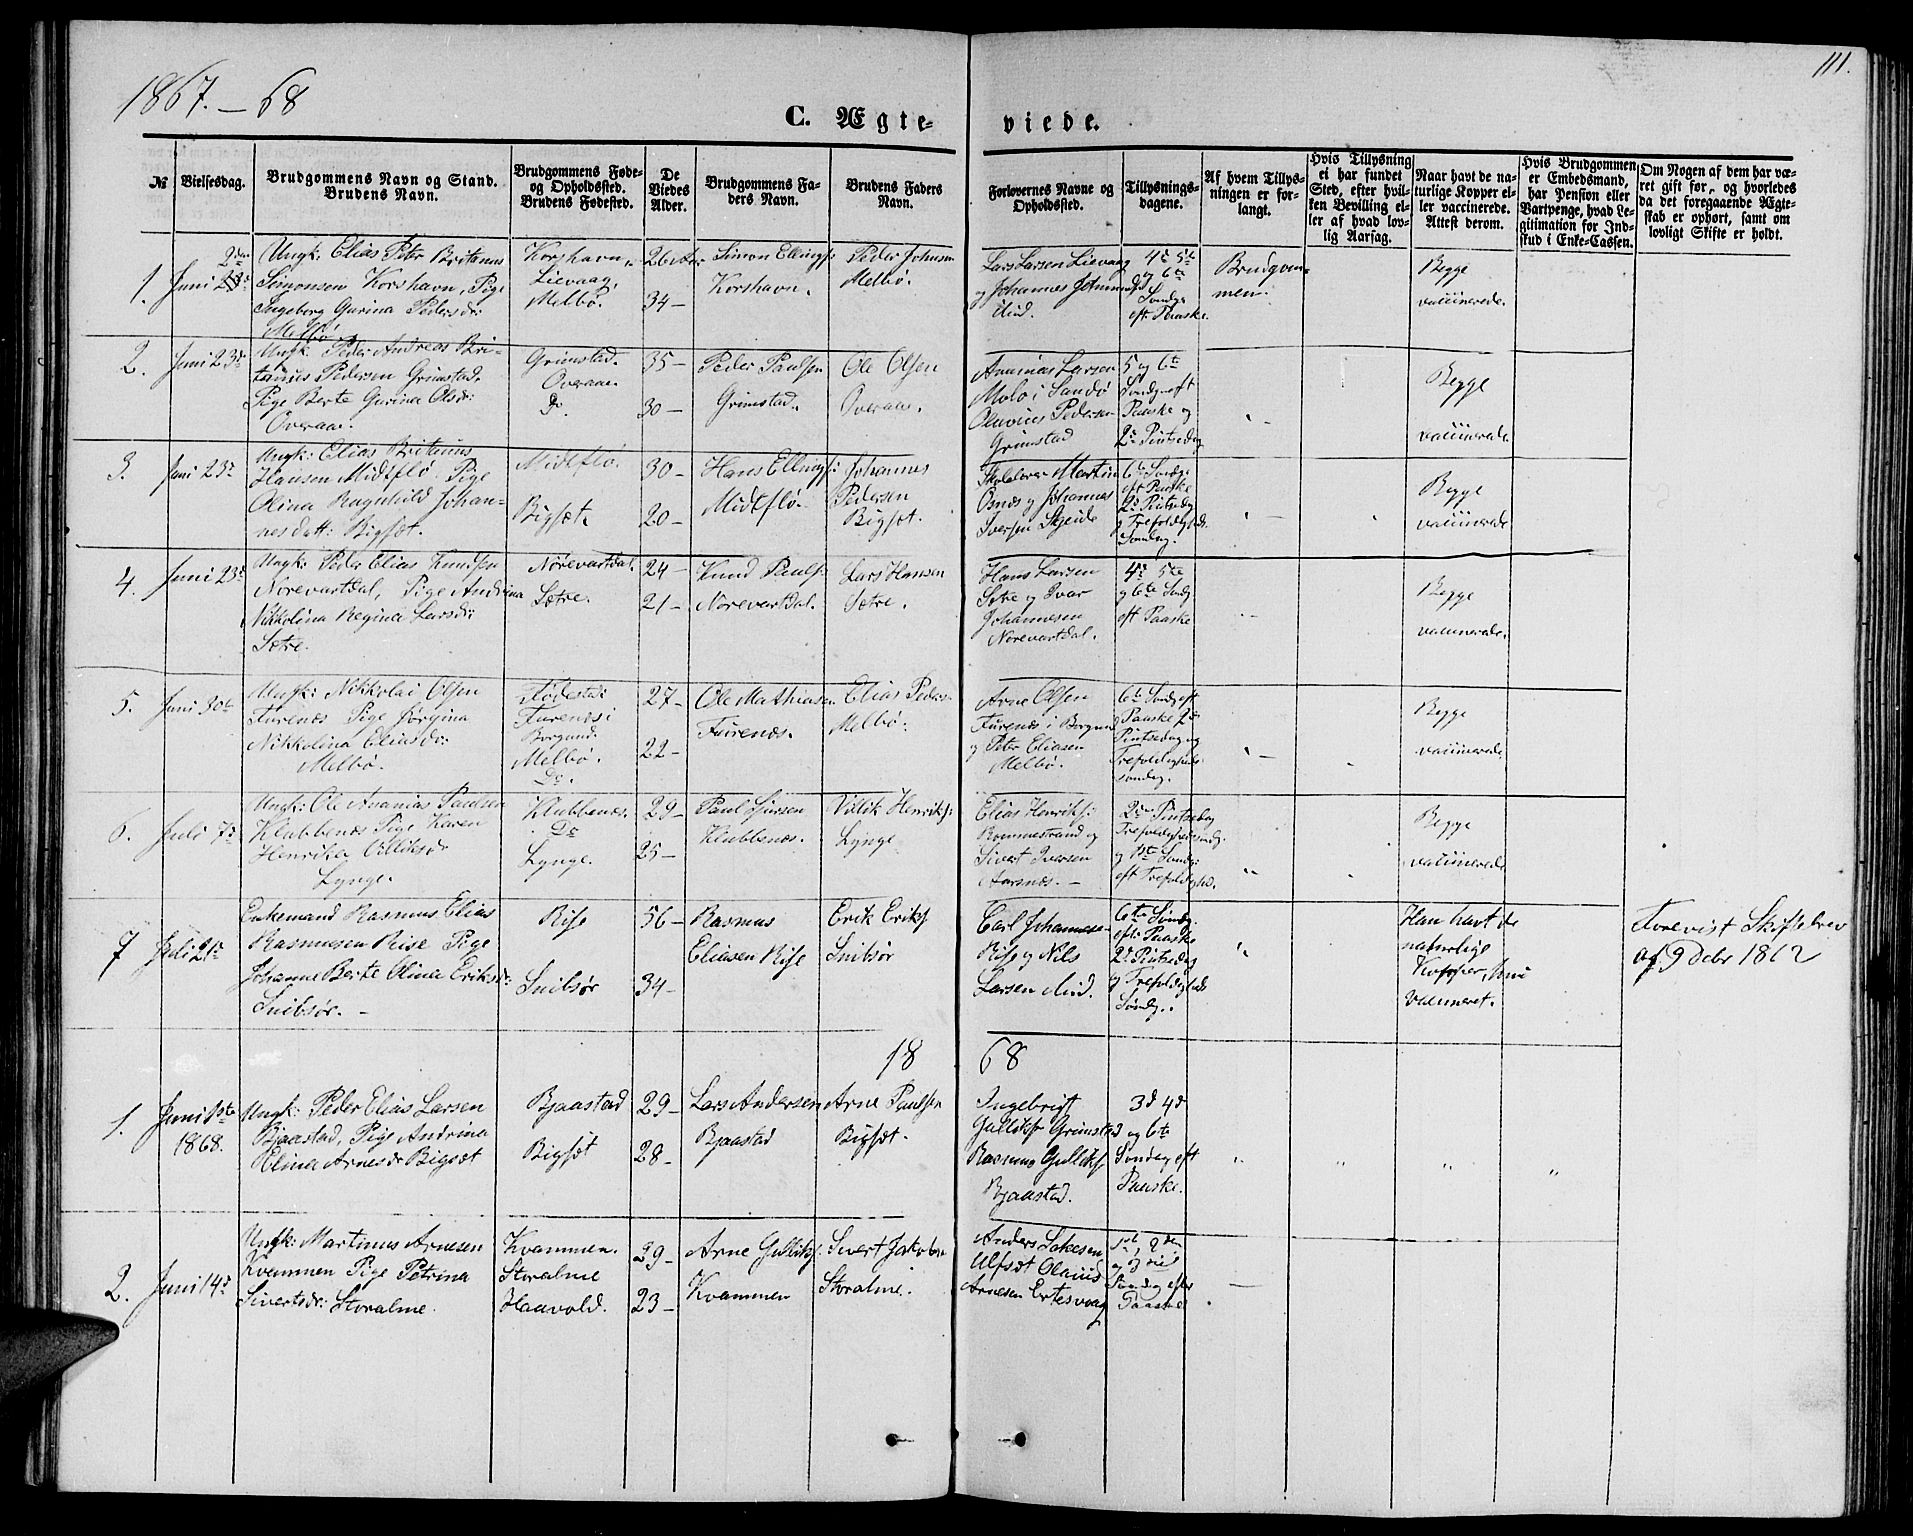 1867.–68
111.
C. Ægte-
viede.
№
Vielsesdag.
Brudgommens Navn og Stand.
Brudens Navn.
Brudgommens Føde-
og Opholdssted.
Brudens Fødested.
De
Viedes
Alder.
Brudgommens Fa-
ders Navn.
Brudens Faders
Navn.
Forlovernes Navne og
Opholdssted.
Tillysnings-
dagene.
Af hvem Tillys-
ningen er for-
langt.
Hvis Tillysning
ei har fundet
Sted, efter hvil-
ken Bevilling el-
ler af hvad lov-
lig Aarsag.
Naar havt de na-
turlige Kopper el-
ler vaccinerede.
Attest derom.
Hvis Brudgommen
er Embedsmand,
har Pension eller
Vartpenge, hvad Le-
gitimation for Ind-
skud i Enke-Cassen.
Om Nogen af dem har væ-
ret gift før, og hvorledes
da det foregaaende Ægte-
skab er ophørt, samt om
lovligt Skifte er holdt.
1.
Juni
Ungk: Elias Peter Britanus
Simonsen Korshavn, Pige
Ingeborg Gurina Pedersdr:
Melbø
Korshavn,
Lievaag,
Melbø.
26
34–
Simon Ellingf:
Korshavn.
Peder Johnsen
Melbø.
Lars Larsen Lievaag
og Johannes
4de 5te
og 6te
Søndg.
eft: Paaske.
Brudgom-
men.
Begge
vaccinerede.
2.
Juni 23de
Ungk: Peder Andreas Bri-
tanus Pedersen Grimstad,
Pige Berte Gurina Olsdr:
Overaae.
Grimstad.
Overaae.
Do.
35–
30–
Peder Paulsen
Grimstad.
Ole Olsen
Overaae.
Ananias Larsen
Molo i Sandø
Olavius Pedersen
Grimstad
5 og 6te
Søndg eft
Paaske og
2den Pintsedag
"
Begge
vaccinerede
3.
Juni 23de
Ungk: Elias Britanus
Hansen Midtflø. Pige
Olina Ragnhild Johan-
nesdatt: Bigsæt.
Midtflø.
Bigsæt.
30–
20–
Hans Ellingf:
Midtflø.
Johannes
Pedersen
Bigsæt.
Skolelærer Martin
Osnes og Johannes
Iversen Skeide
6te Søndg
eft Paaske
2den Pintsedag
og Trefoldigheds
Søndag.
" –
"
Begge
vaccinerede
4.
Juni 23de
Ungk: Peder Elias Knudsen
Norevartdal, Pige Andrina
Nikkolina Regina Larsdr:
Sætre.
Nørevartdal.
Sætre.
24–
21–
Knud Paulf:
Norevartdal.
Lars Hansen
Sætre.
Hans Larsen
Sætre og Ivar
Johannesen
Norevartdal.
4de 5te
og 6te Søndg
eft Paaske
"
Begge
vaccinerede.
5.
Juni 30te
Ungk: Nikkolai Olsen
Furenæs Pige Jørgina
Nikkolina Eliasdr:
Melbø.
Fødested:
Furenæs i
Borgund.
Melbø.
Do.
27–
22–
Ole Mathiasen
Furenæs.
Elias Peders:
Melbø.
Arne Olsen
Furenæs i Borgund
og Peter Eliasen
Melbø.
6te Søndg eft
Paaske 2den
Pintsedag og
Trefoldigheds
søndag.
" –
"
Begge
vaccinerede
6.
Juli 7de
Ungk: Ole Ananias Paulsen
Klubbenæs Pige Karen
Henrika Villiksdr
Lynge.
Klubbenæs.
Do
Lynge.
29–
25–
Paul Sjursen
Klubbenæs.
Villik Henriks:
Lynge
Elias Henriks:
Rommestrand og
Sivert Iversen
Aarsnæs. –
2den Pintsedag
Trefoldighedssøndg.
og 1ste Søndg:
eft Trefoldighed.
"
"
Begge
vaccinerede
7
Juli 21de
Enkemand Rasmus Elias
Rasmusen Rise Pige
Johanne Berte Olina Eriksdr:
Snibsør. –
Rise
Snibsør
56–
34–
Rasmus
Eliasen Rise
Erik Eriks
Snibsør
Carl Johannesen
Rise og Nils
Larsen
6te Søndg.
eft: Paaske
2den Pintsedag
og Trefoldigheds
Søndg.
"
Han havt de
naturlige
Kopper, hun
vaccineret.
Forevist Skiftebrev
af 9 Debr 1862
18
68
1.
Juni 1ste
1868.
Ungk: Peder Elias Larsen
Bjaastad, Pige Andrina
Elina Arnesdr Bigsæt
Bjaastad
Bigsæt
29–
28–
Lars Andersen
Bjaastad
Arne Paulsen
Bigsæt.
Ingebrigt
Gulliksf Grimstad
Rasmus Gulliksf.
Bjaastad.
3de 4de
og 6te
Søndag eft
Paaske.
"
"
"
"
2.
Juni 14de
Ungk: Martinus Arnesen
Kvammen Pige Petrina
Sivertsdr: Storalme.
Kvammen.
Storalme
Haavold.
29–
23–
Arne Gulliksf.
Kvammen
Sivert Jakobsen
Storalme.
Anders Sakesen
Ulfsæt Olaus
Arnesen Ertesvaag
1ste, 2den
og 3die
Søndag efter
Paaske
—